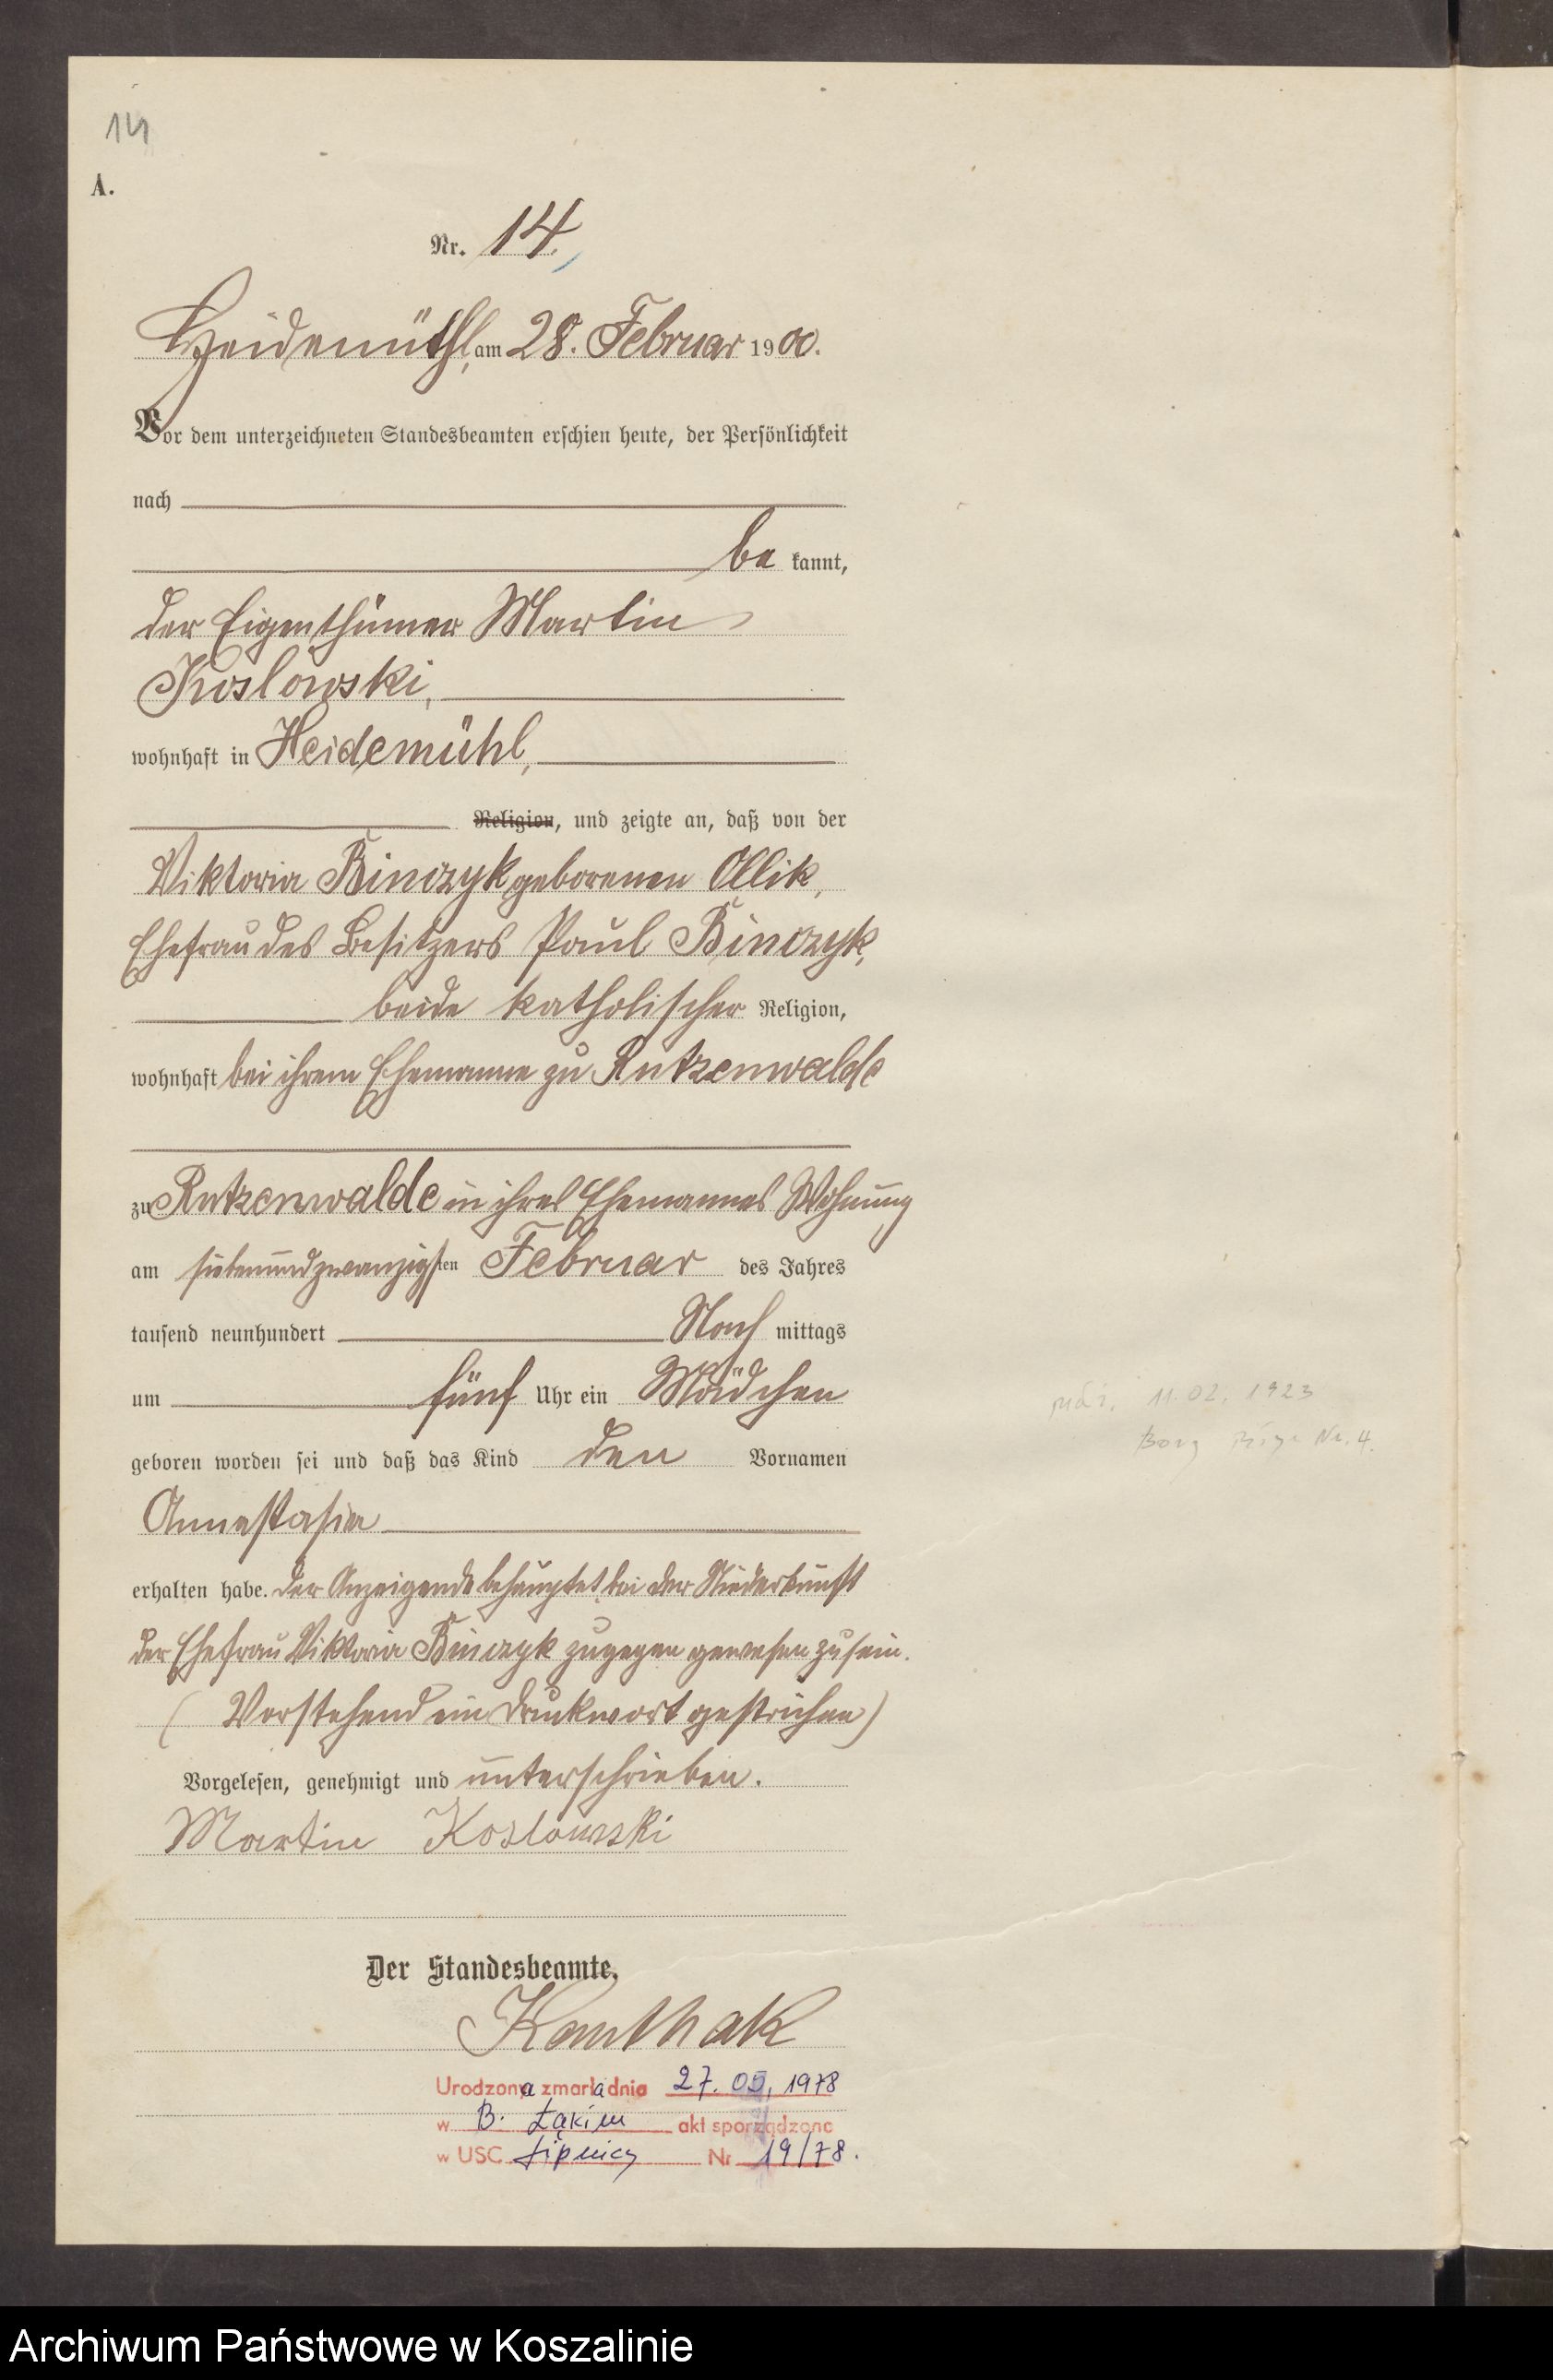 14
A.
Nr. 14.
Heidemühl, am 28. Februar 1900.
Vor dem unterzeichneten Standesbeamten erschien heute, der Persönlichkeit
nach
be kannt,
der Eigenthümer Martin
Koslowski,
wohnhaft in Heidemühl,
Religion, und zeigte an, daß von der
Viktoria Binczyk geborenen Ollik,
Ehefrau des Besitzers Paul Binczyk,
beide katholischer Religion,
wohnhaft bei ihrem Ehemanne zu Rutzenwalde
zu Rutzenwalde in ihres Ehemannes Wohnung
am siebenundzwanzigsten Februar des Jahres
tausend neunhundert Nach mittags
um fünf Uhr ein Mädchen
geboren worden sei und daß das Kind den Vornamen
Annastasia
erhalten habe. Der Anzeigende behauptet, bei der Niederkunft
der Ehefrau Viktoria Binczyk zugegen gewesen zu sein.
(Vorstehend ein Druckwort gestrichen)
Vorgelesen, genehmigt und unterschrieben.
Martin Koslowski
Der Standesbeamte.
Kanthak
Urodzona zmarła dnia 27. 05. 1978
w B. Łąkim akt sporządzono
w USC Lipnicy Nr 19/78.
11.02.1923
Borz Nr. 4.
Archiwum Państwowe w Koszalinie